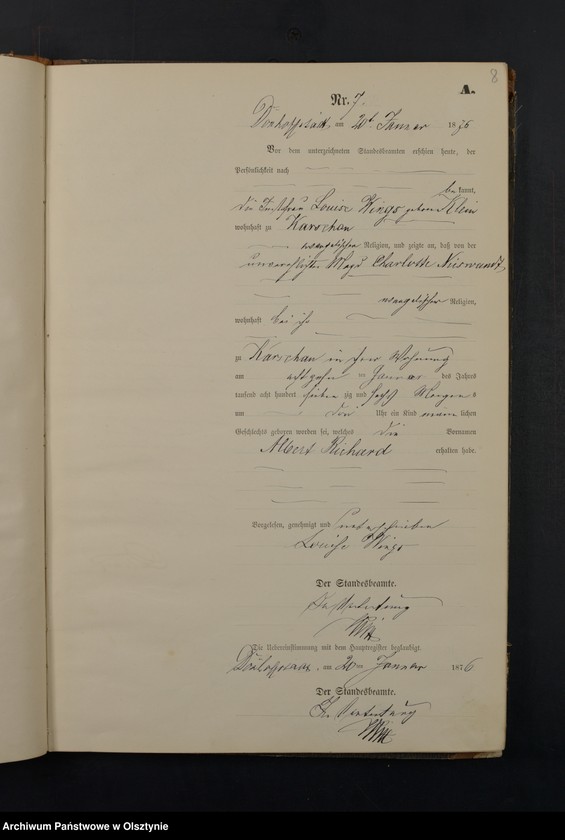 8
A.
Nr. 7.
am 20t Januar 1876
Vor dem unterzeichneten Standesbeamten erschien heute, der
Persönlichkeit nach
bekannt,
die Louise Wings geborne Klein
wohnhaft zu Karschau
evangelischer Religion, und zeigte an, daß von der
unverehelichten Magd Charlotte
evangelischer Religion,
wohnhaft bei ihr
zu Karschau in ihrer Wohnung
am achtzehn ten Januar des Jahres
tausend acht hundert sieben zig und sechs Morgens
um drei Uhr ein Kind männlichen
Geschlechts geboren worden sei, welches die Vornamen
Albert Richard erhalten habe.
Vorgelesen, genehmigt und unterschrieben
Louise Wings
Der Standesbeamte.
In Vertretung
Die Uebereinstimmung mit dem Hauptregister beglaubigt.
am 20ten Januar 1876
Der Standesbeamte.
In Vertretung
Archiwum Państwowe w Olsztynie